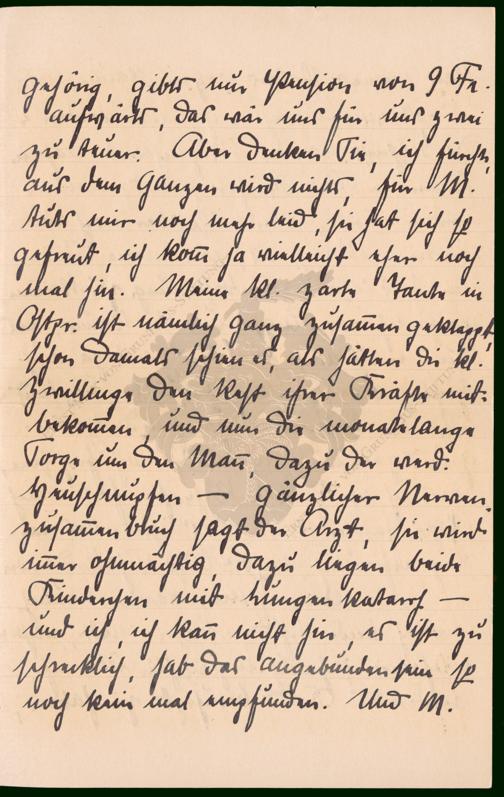 gehörig, gibts nur Pension von 9 Fr.
aufwärts, das wär uns für uns zwei
zu teuer. Aber denken Sie, ich fürcht,
aus dem Ganzen wird nichts, für M.
tuts mir noch mehr leid, sie hat sich so
gefreut, ich kom̅ ja vielleicht eher noch
mal hin. Meine kl. zarte Tante in
Ostpr. ist nämlich ganz zusam̅engeklappt,
schon damals schien es, als hätten die kl.
Zwillinge den Rest ihrer Kräfte mit-
bekom̅en, und nun die monatelange
Sorge um den Man̅, dazu der
Heuschnupfen — gänzlicher Nerven-
zusam̅enbruch sagt der Arzt, sie wird
im̅er ohnmächtig, dazu liegen beide
Kinderchen mit Lungenkatarrh —
und ich, ich kan̅ nicht hin, es ist zu
schrecklich, hab das angebundensein so
noch kein mal empfunden. Und M.